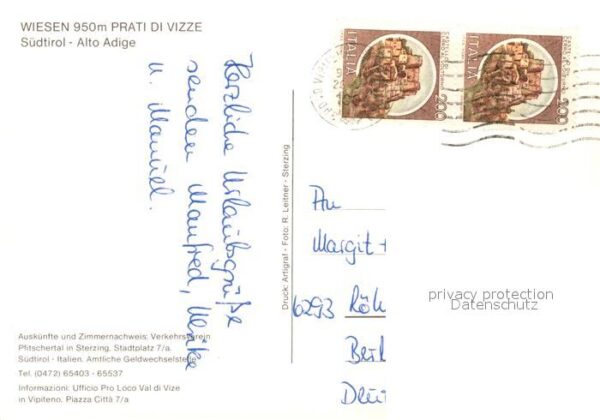 WIESEN 950m PRATI DI VIZZE
Südtirol - Alto Adige
Herzliche Urlaubsgrüße
senden Manfred, Ulrike
u. Manuel.
Auskünfte und Zimmernachweis: Verkehrsverein
Pfitschertal in Sterzing, Stadtplatz 7/a.
Südtirol - Italien. Amtliche Geldwechselstelle
Tel. (0472) 65403 - 65537
Informazioni: Ufficio Pro Loco Val di Vize
in Vipiteno, Piazza Città 7/a
Druck: Artigraf - Foto: R. Leitner - Sterzing
ITALIA 200
ITALIA 200
An
Margit +
6293 Röh
Deu
privacy protection
Datenschutz